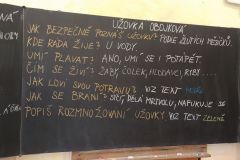 UŽOVKA OBOJKOVÁ
JAK BEZPEČNĚ POZNÁŠ UŽOVKU? PODLE ŽLUTÝCH MĚSÍČKŮ
KDE RÁDA ŽIJE? U VODY.
UMÍ PLAVAT? ANO, UMÍ SE I POTÁPĚT.
ČÍM SE ŽIVÍ? ŽÁBY, ČOLEK, HLODAVCI, RYBY...
JAK LOVÍ SVOU POTRAVU? VIZ TEXT MODŘE
JAK SE BRÁNÍ? SYČÍ, DĚLÁ MRTVOLU, NAFUKUJE SE
POPIŠ ROZMNOŽOVÁNÍ UŽOVKY VIZ TEXT ZELENĚ